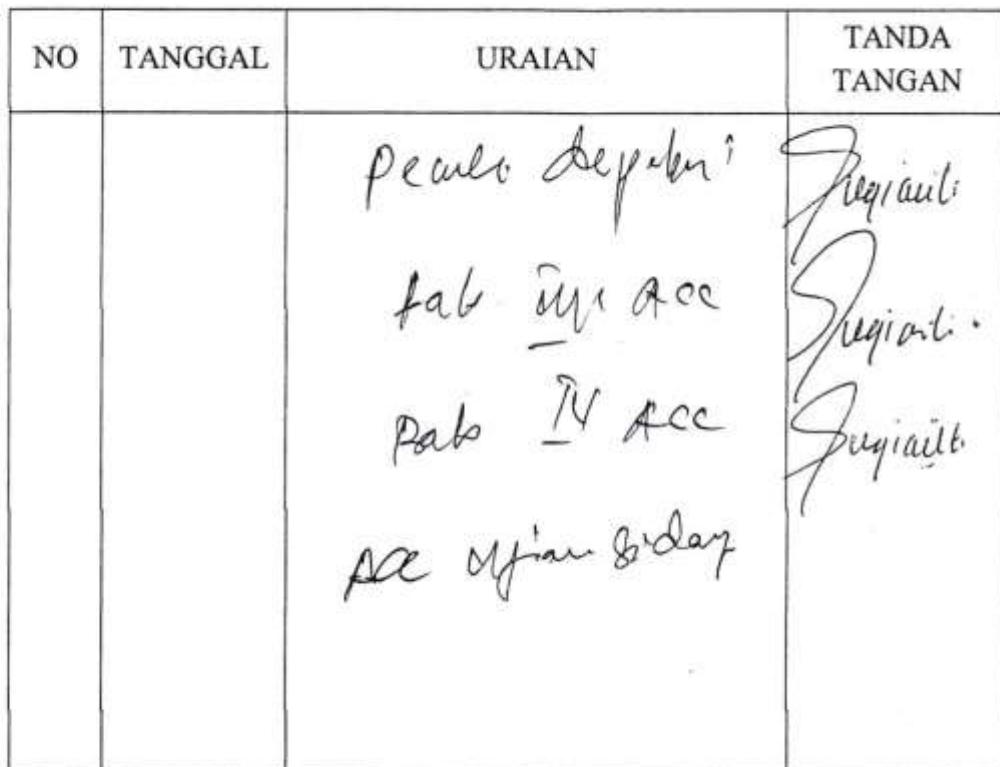 NO TANGGAL URAIAN TANDA TANGAN
Sugianti
Bab III ACC
Sugianti.
Bab IV ACC
Sugianti
ACC Ujian Sidang